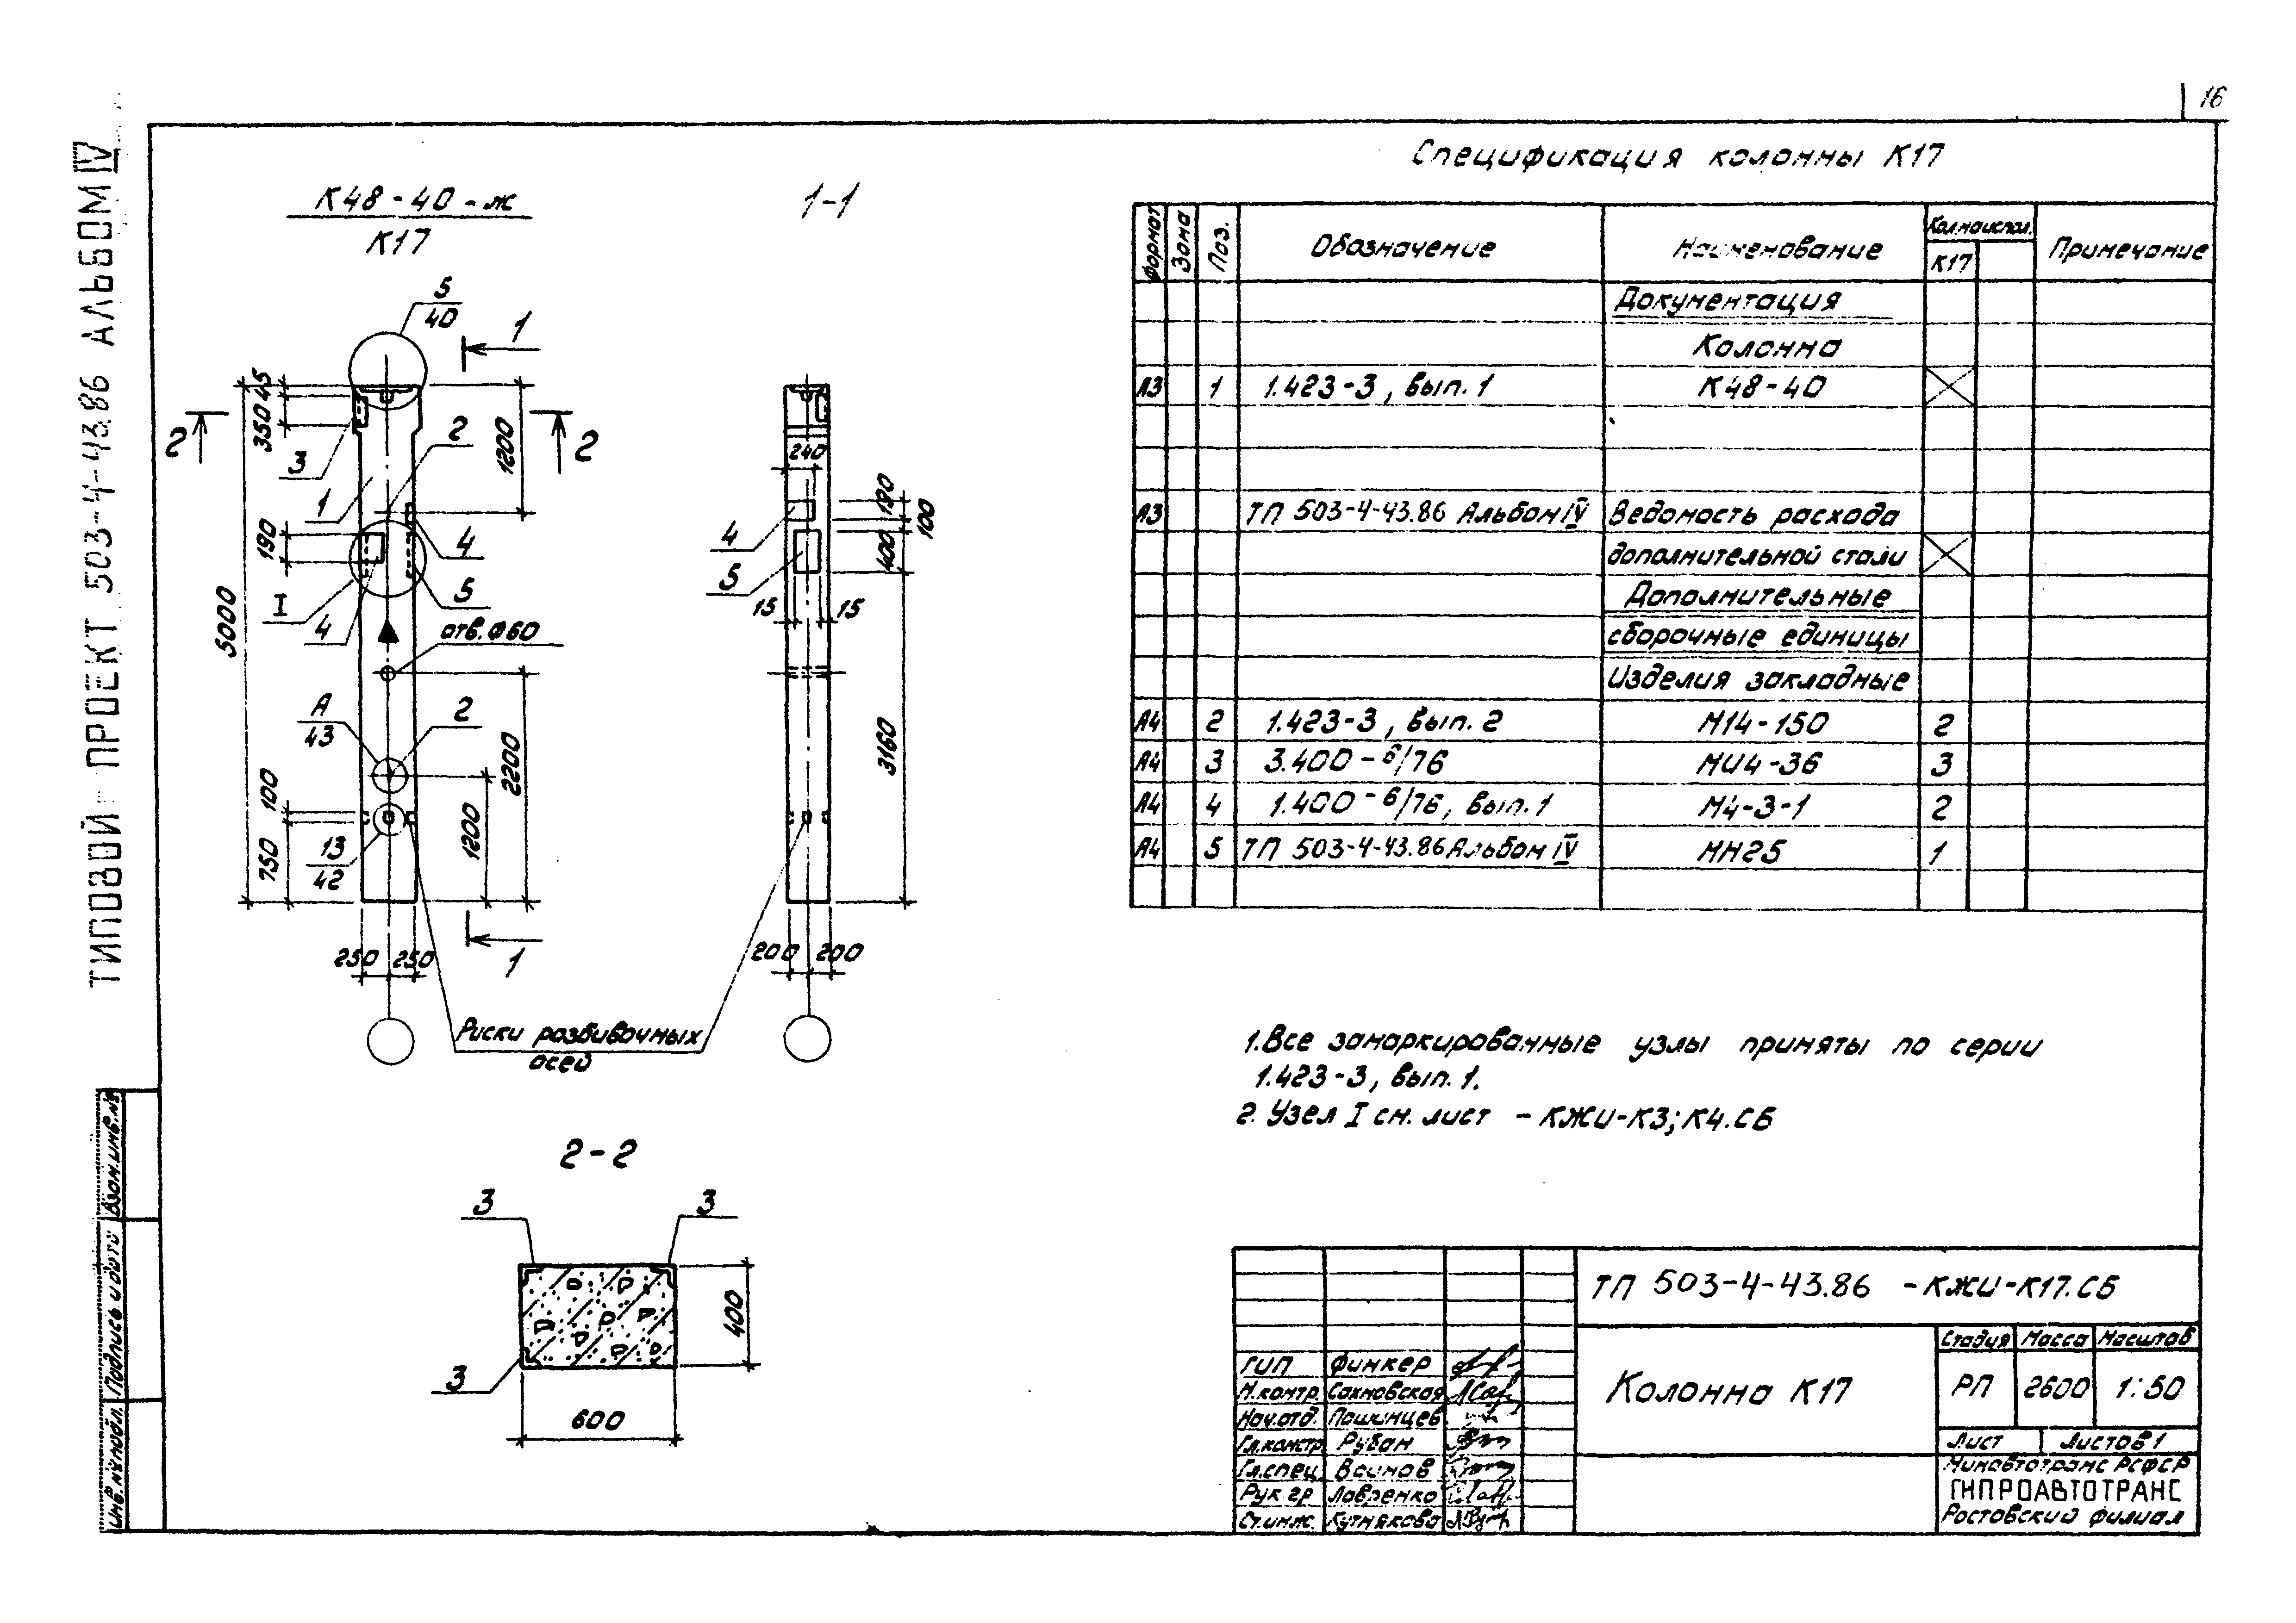 16
ТИПОВОЙ ПРОЕКТ 503-4-43.86 АЛЬБОМ IV
К48-40-ж
К17
1-1
5
40
1
45
350
2
2
3
2
1200
1
190
4
5
I
4
5000
отв. Ф60
А
43
2
2200
100
750
1200
13
42
1
250 250
Риски разбивочных
осей
240
190
100
4
400
5
15 15
3160
200 200
2-2
3 3
3
400
600
Спецификация колонны К17
Формат Зона Поз. Обозначение Наименование Кол. на испол. Примечание
К17
Документация
Колонна
А3 1 1.423-3, вып. 1 К48-40
А3 ТП 503-4-43.86 Альбом IV Ведомость расхода
дополнительной стали
Дополнительные
сборочные единицы
Изделия закладные
А4 2 1.423-3, вып. 2 М14-150 2
А4 3 3.400-6/76 МИ4-36 3
А4 4 1.400-6/76, вып. 1 М4-3-1 2
А4 5 ТП 503-4-43.86 Альбом IV МН25 1
1. Все замаркированные узлы приняты по серии
1.423-3, вып. 1.
2. Узел I см. лист - КЖИ-К3; К4.СБ
ТП 503-4-43.86 -КЖИ-К17.СБ
Колонна К17
Стадия Масса Масштаб
РП 2600 1:50
Лист Листов 1
Минавтотранс РСФСР
ГИПРОАВТОТРАНС
Ростовский филиал
ГИП Финкер
Н.контр. Сахновская
Нач.отд. Пашинцев
Гл.констр. Рубан
Гл.спец. Воинов
Рук.гр. Лавренко
Ст.инж. Кутнякова
Инв.№ подл. Подпись и дата Взам.инв.№